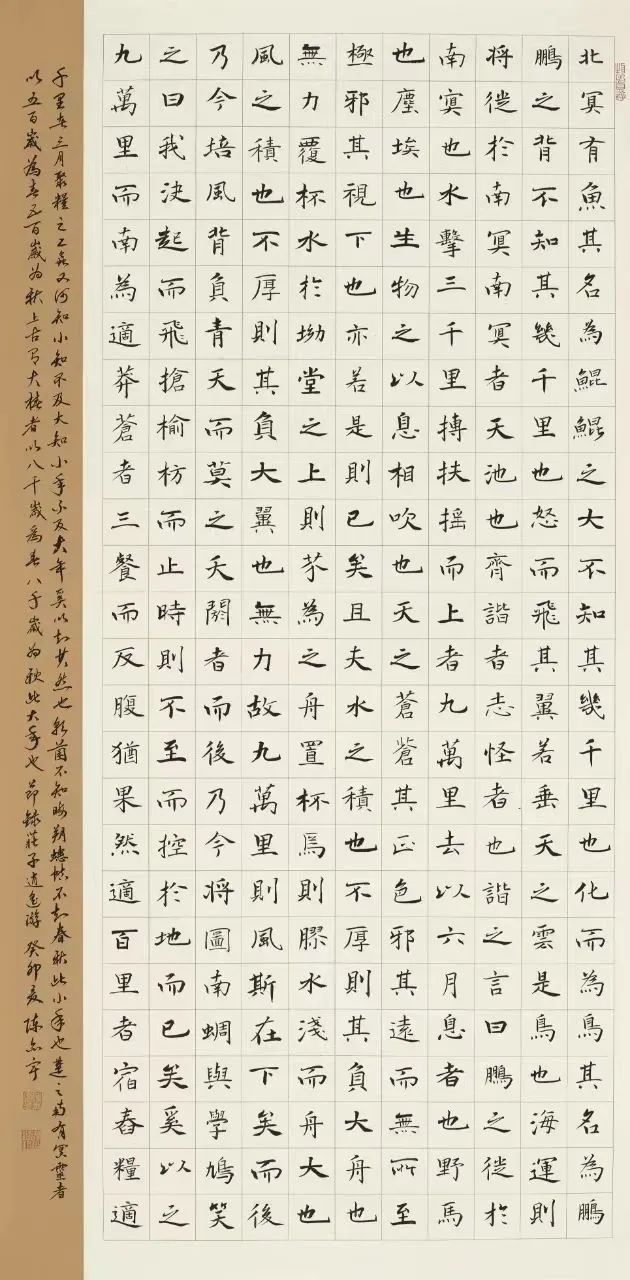 北冥有魚其名為鯤鯤之大不知其幾千里也化而為鳥其名為鵬
鵬之背不知其幾千里也怒而飛其翼若垂天之雲是鳥也海運則
将徙於南冥南冥者天池也齊諧者志怪者也諧之言曰鵬之徙於
南冥也水擊三千里摶扶摇而上者九萬里去以六月息者也野馬
也塵埃也生物之以息相吹也天之蒼蒼其正色邪其遠而無所至
極邪其視下也亦若是則已矣且夫水之積也不厚則其負大舟也
無力覆杯水於坳堂之上則芥為之舟置杯焉則膠水淺而舟大也
風之積也不厚則其負大翼也無力故九萬里則風斯在下矣而後
乃今培風背負青天而莫之夭閼者而後乃今将圖南蜩與學鳩笑
之曰我決起而飛搶榆枋而止時則不至而控於地而已矣奚以之
九萬里而南為適莽蒼者三餐而反腹猶果然適百里者宿舂糧適
千里者三月聚糧之二蟲又何知小知不及大知小年不及大年奚以知其然也朝菌不知晦朔蟪蛄不知春秋此小年也楚之南有冥靈者
以五百歲為春五百歲為秋上古有大椿者以八千歲為春八千歲為秋此大年也節錄莊子逍遙游 癸卯夏 陳